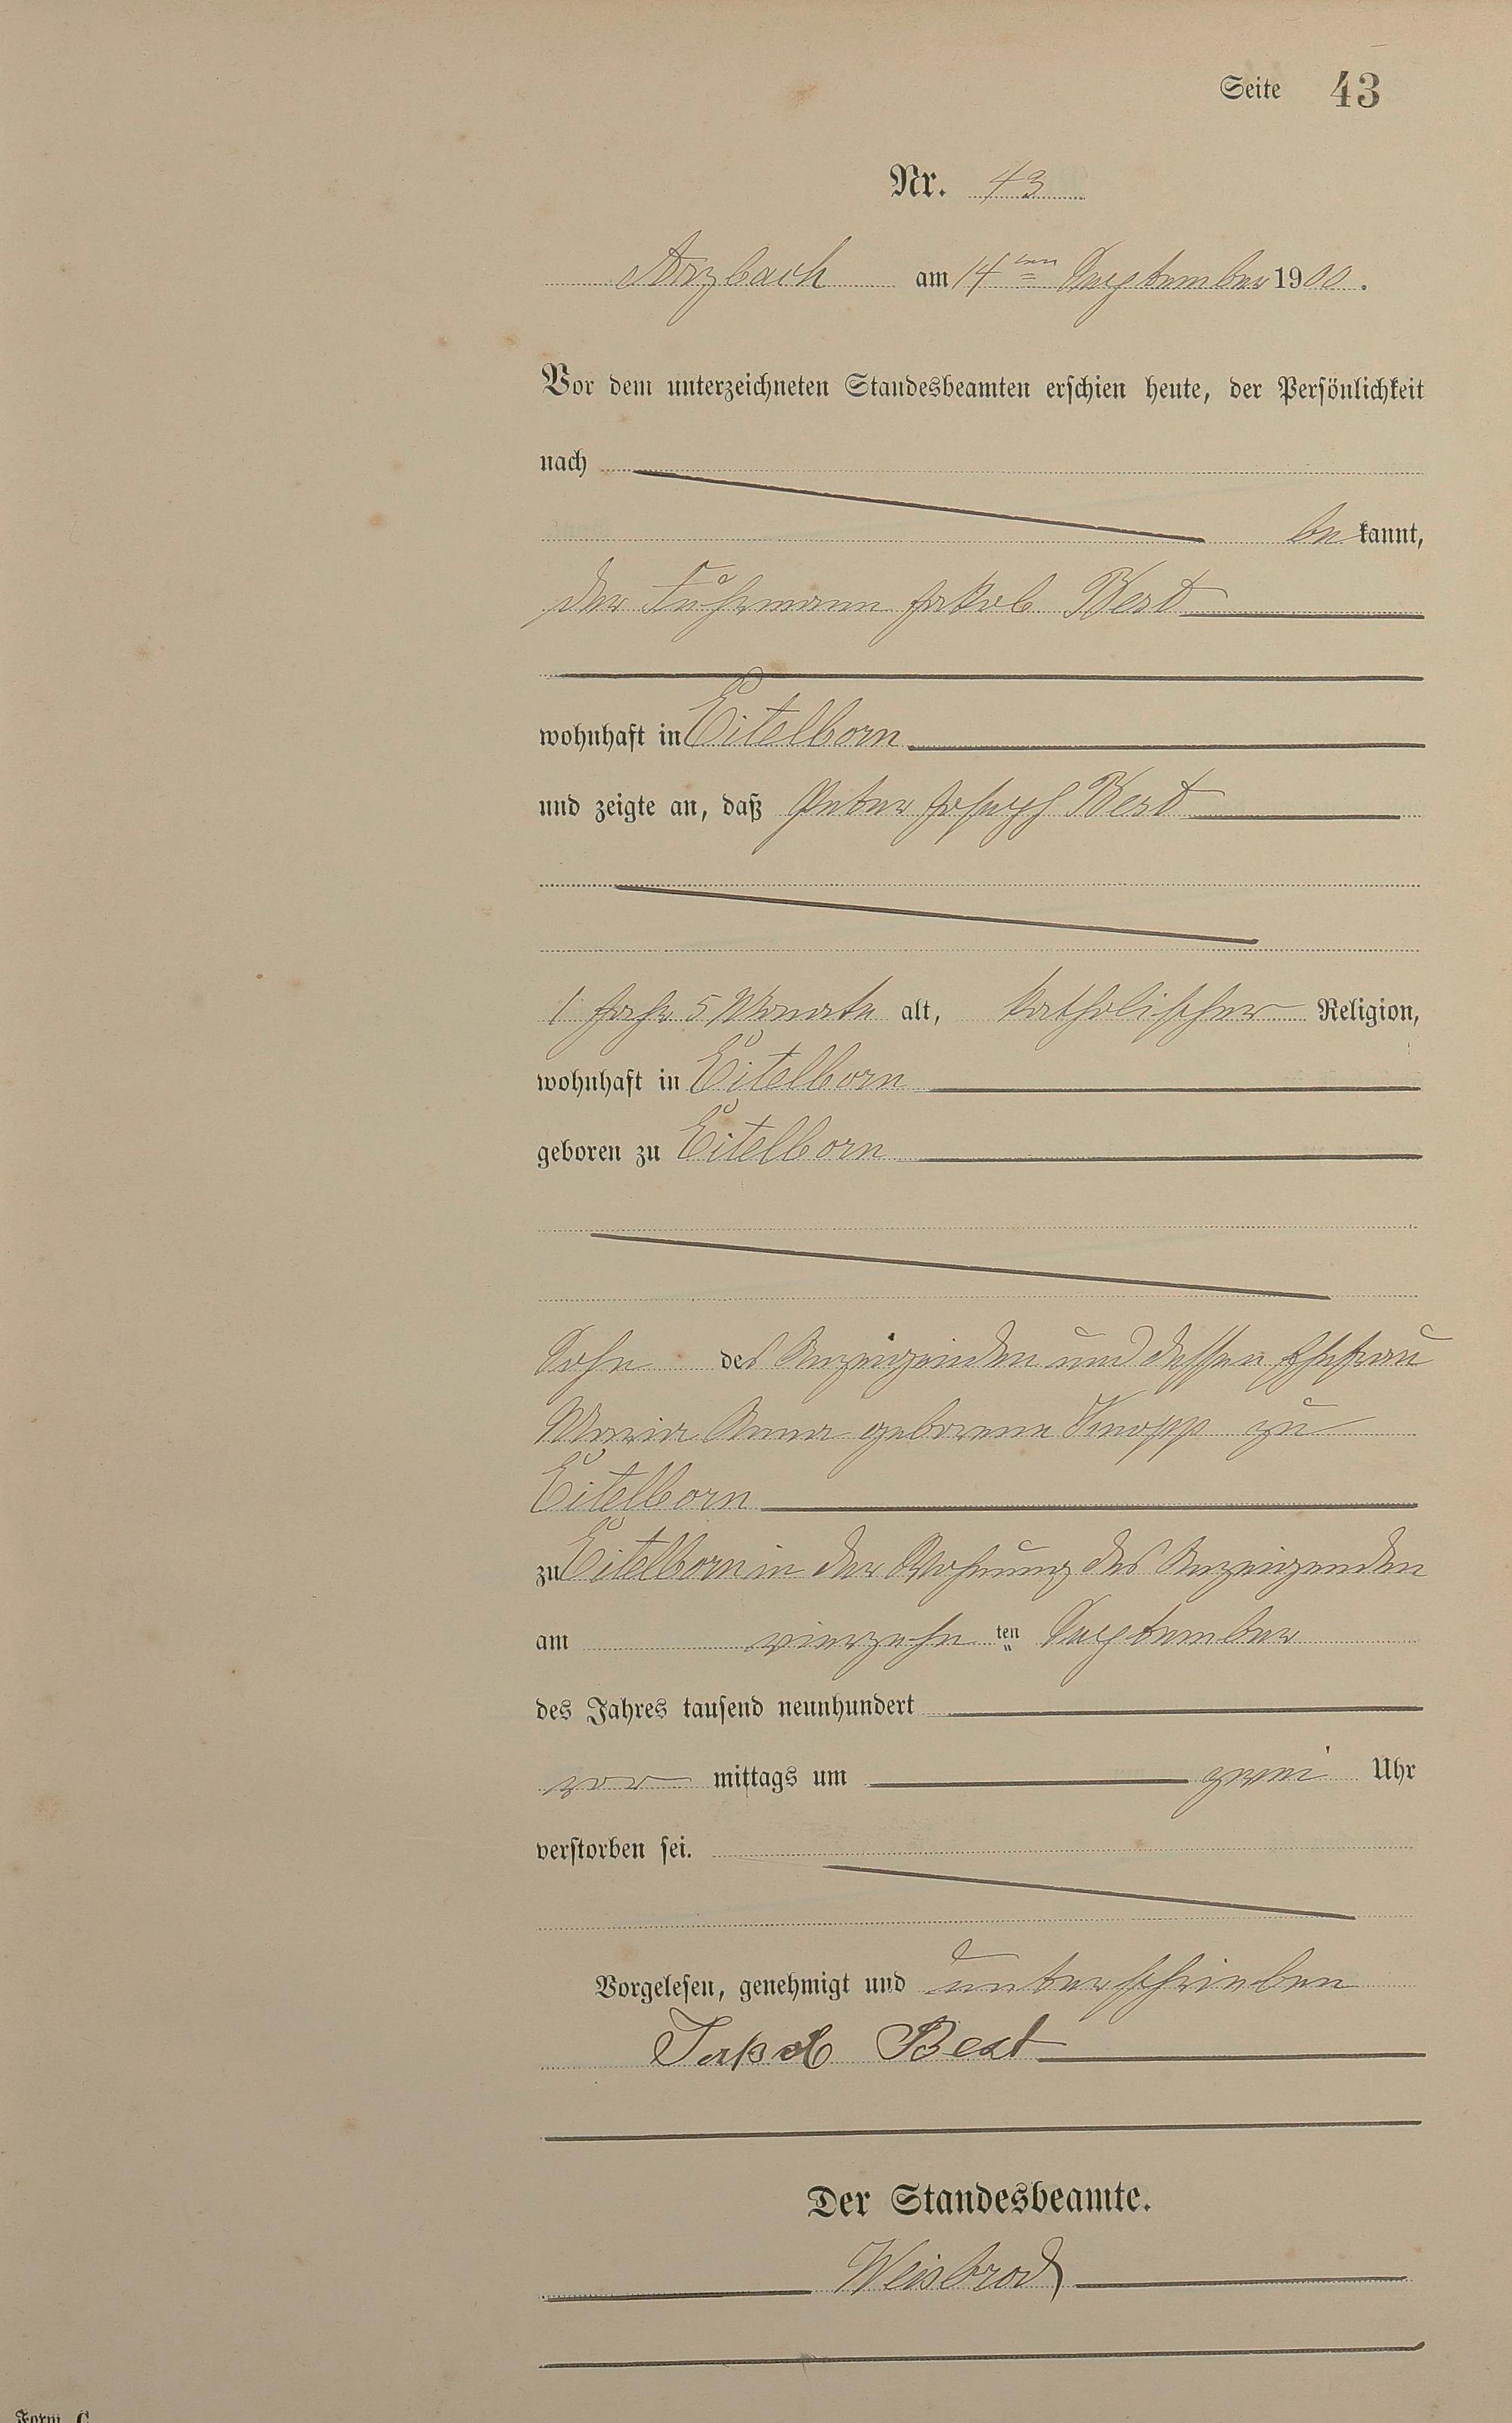 Seite 43
Nr. 43
Arzbach am 14ten September 1900.
Vor dem unterzeichneten Standesbeamten erschien heute, der Persönlichkeit
nach
bekannt,
der Fuhrmann Jakob Best
wohnhaft in Eitelborn
und zeigte an, daß Peter Joseph Best
1 Jahr 5 Monate alt, katholischer Religion,
wohnhaft in Eitelborn
geboren zu Eitelborn
Sohn des Anzeigenden und dessen Ehefrau
Maria Anna geborene Knopp zu
Eitelborn
zu Eitelborn in der Wohnung des Anzeigenden
am vierzehnten September
des Jahres tausend neunhundert
vormittags um zwei Uhr
verstorben sei.
Vorgelesen, genehmigt und unterschrieben
Jakob Best
Der Standesbeamte.
Weisbrod
Form C